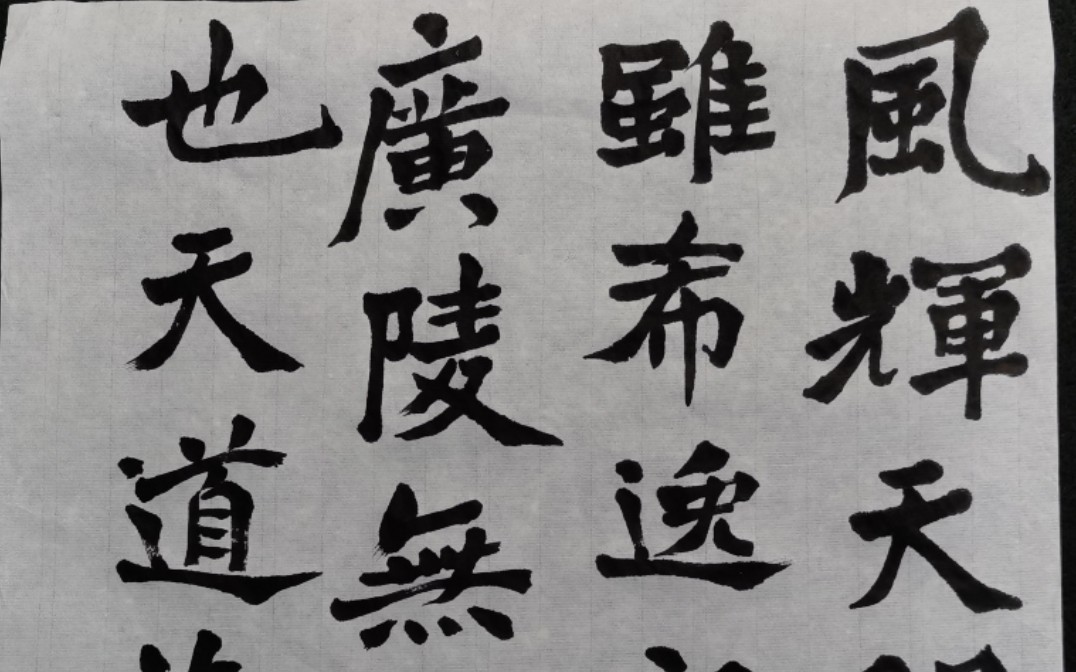 風輝天
雖希逸
廣陵無
也天道